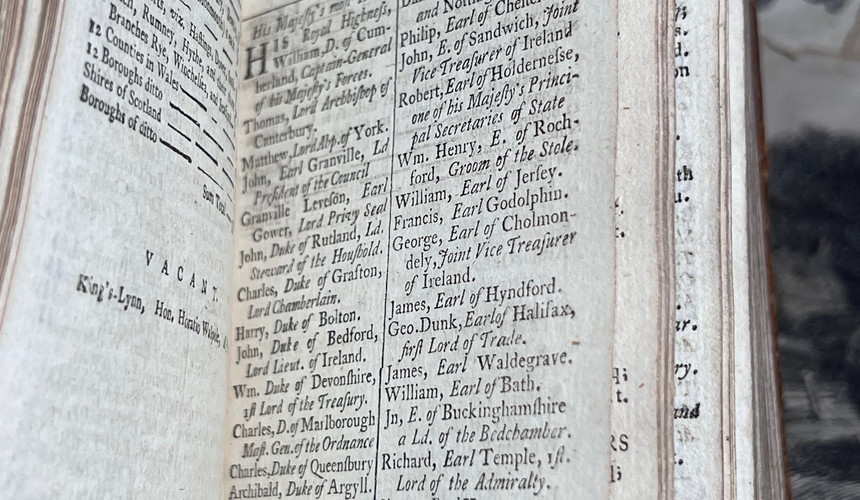 Ports, viz. Hastings, Dover,
Rumney, Hythe, and
Branches Rye, Winchelsea, and
12 Counties in Wales
12 Boroughs ditto
Shires of Scotland
Boroughs of ditto
Sum Total
VACANT.
King's-Lynn, Hon. Horatio Walpole,
His Majeſty's moſt
HIS Royal Highneſs,
William, D. of Cum-
berland, Captain-General
of his Majeſty's Forces.
Thomas, Lord Archbiſhop of
Canterbury.
Matthew, Lord Abp. of York.
John, Earl Granville, Ld
Preſident of the Council
Granville Leveſon, Earl
Gower, Lord Privy Seal
John, Duke of Rutland, Ld.
Steward of the Houſhold.
Charles, Duke of Grafton,
Lord Chamberlain.
Harry, Duke of Bolton.
John, Duke of Bedford,
Lord Lieut. of Ireland.
Wm. Duke of Devonſhire,
1ſt Lord of the Treaſury.
Charles, D. of Marlborough
Maſt. Gen. of the Ordnance
Charles, Duke of Queenſbury
Archibald, Duke of Argyll.
and
Philip, Earl of
John, E. of Sandwich, Joint
Vice Treaſurer of Ireland
Robert, Earl of Holderneſſe,
one of his Majeſty's Princi-
pal Secretaries of State
Wm. Henry, E. of Roch-
ford, Groom of the Stole.
William, Earl of Jerſey.
Francis, Earl Godolphin.
George, Earl of Cholmon-
dely, Joint Vice Treaſurer
of Ireland.
James, Earl of Hyndford.
Geo. Dunk, Earl of Halifax,
firſt Lord of Trade.
James, Earl Waldegrave.
William, Earl of Bath.
Jn, E. of Buckinghamſhire
a Ld. of the Bedchamber.
Richard, Earl Temple, 1ſt.
Lord of the Admiralty.